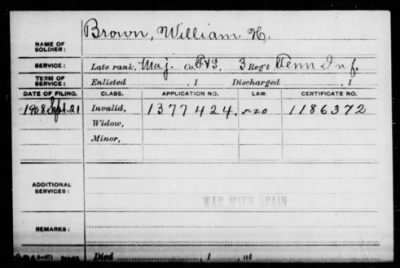 Brown, William H.
NAME OF SOLDIER:
SERVICE: Late rank, Maj. Co. F&S, 3 Reg't Tenn Inf.
TERM OF SERVICE: Enlisted , 1 Discharged , 1
DATE OF FILING. CLASS. APPLICATION NO. LAW. CERTIFICATE NO.
1908 Sept. 21 Invalid, 1377424. 1186372
Widow,
Minor,
ADDITIONAL SERVICES:
WAR WITH SPAIN
REMARKS:
Died , 1 , at